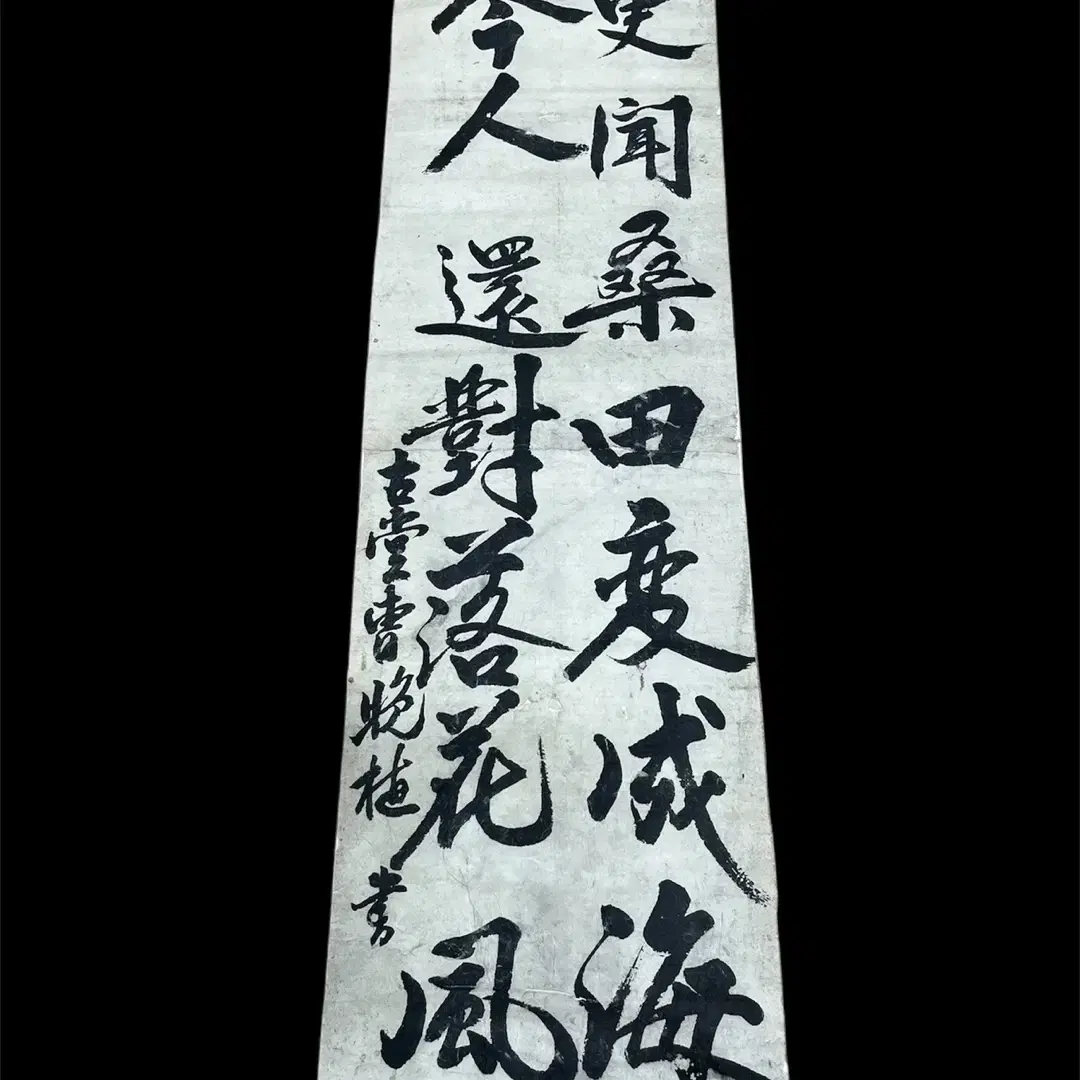 更聞桑田變成海
今人還對落花風
古堂曹晩植書